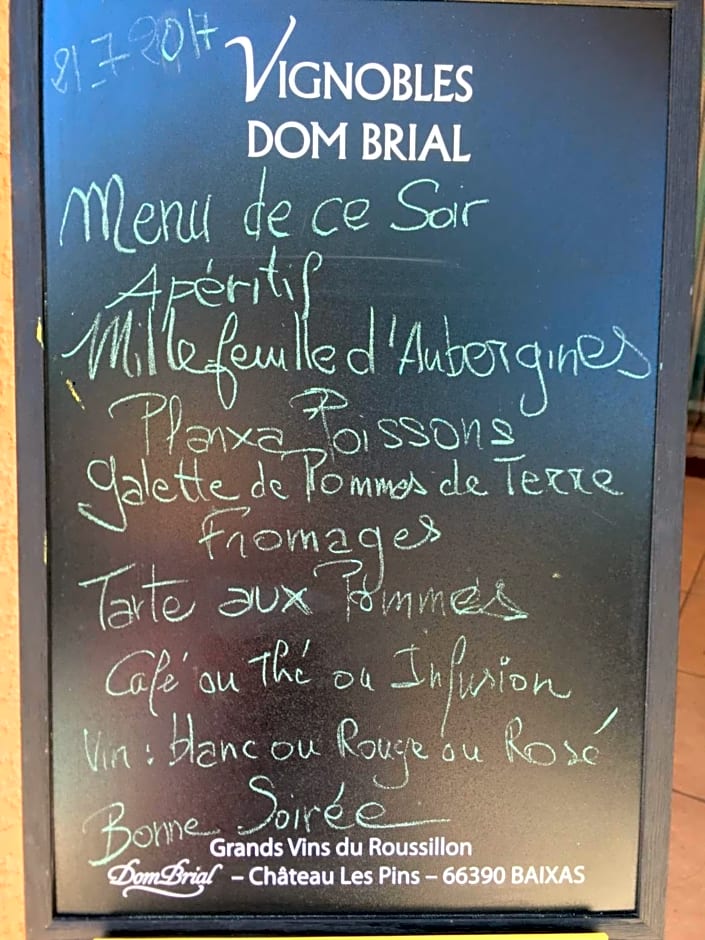 21_7 2017
VIGNOBLES
DOM BRIAL
Menu de ce Soir
Apéritif
Millefeuille d'Aubergines
Planxa Poissons
Galette de Pommes de Terre
Fromages
Tarte aux Pommes
Café ou Thé ou Infusion
Vin : blanc ou Rouge ou Rosé
Bonne Soirée
Grands Vins du Roussillon
Dom Brial – Château Les Pins – 66390 BAIXAS